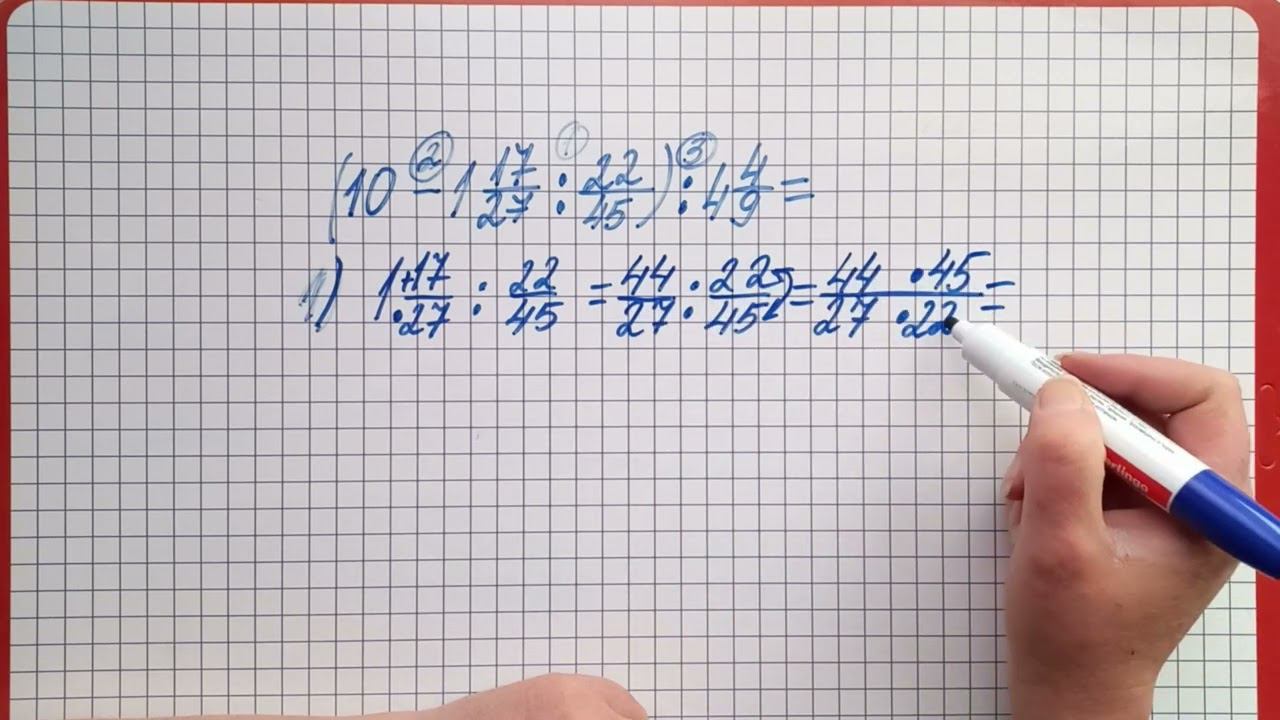 (10 - 1 17/27 : 22/45) : 4 4/9 =
1) 1 17/27 : 22/45 = 44/27 : 22/45 = 44 · 45 / 27 · 22 =
erlingo